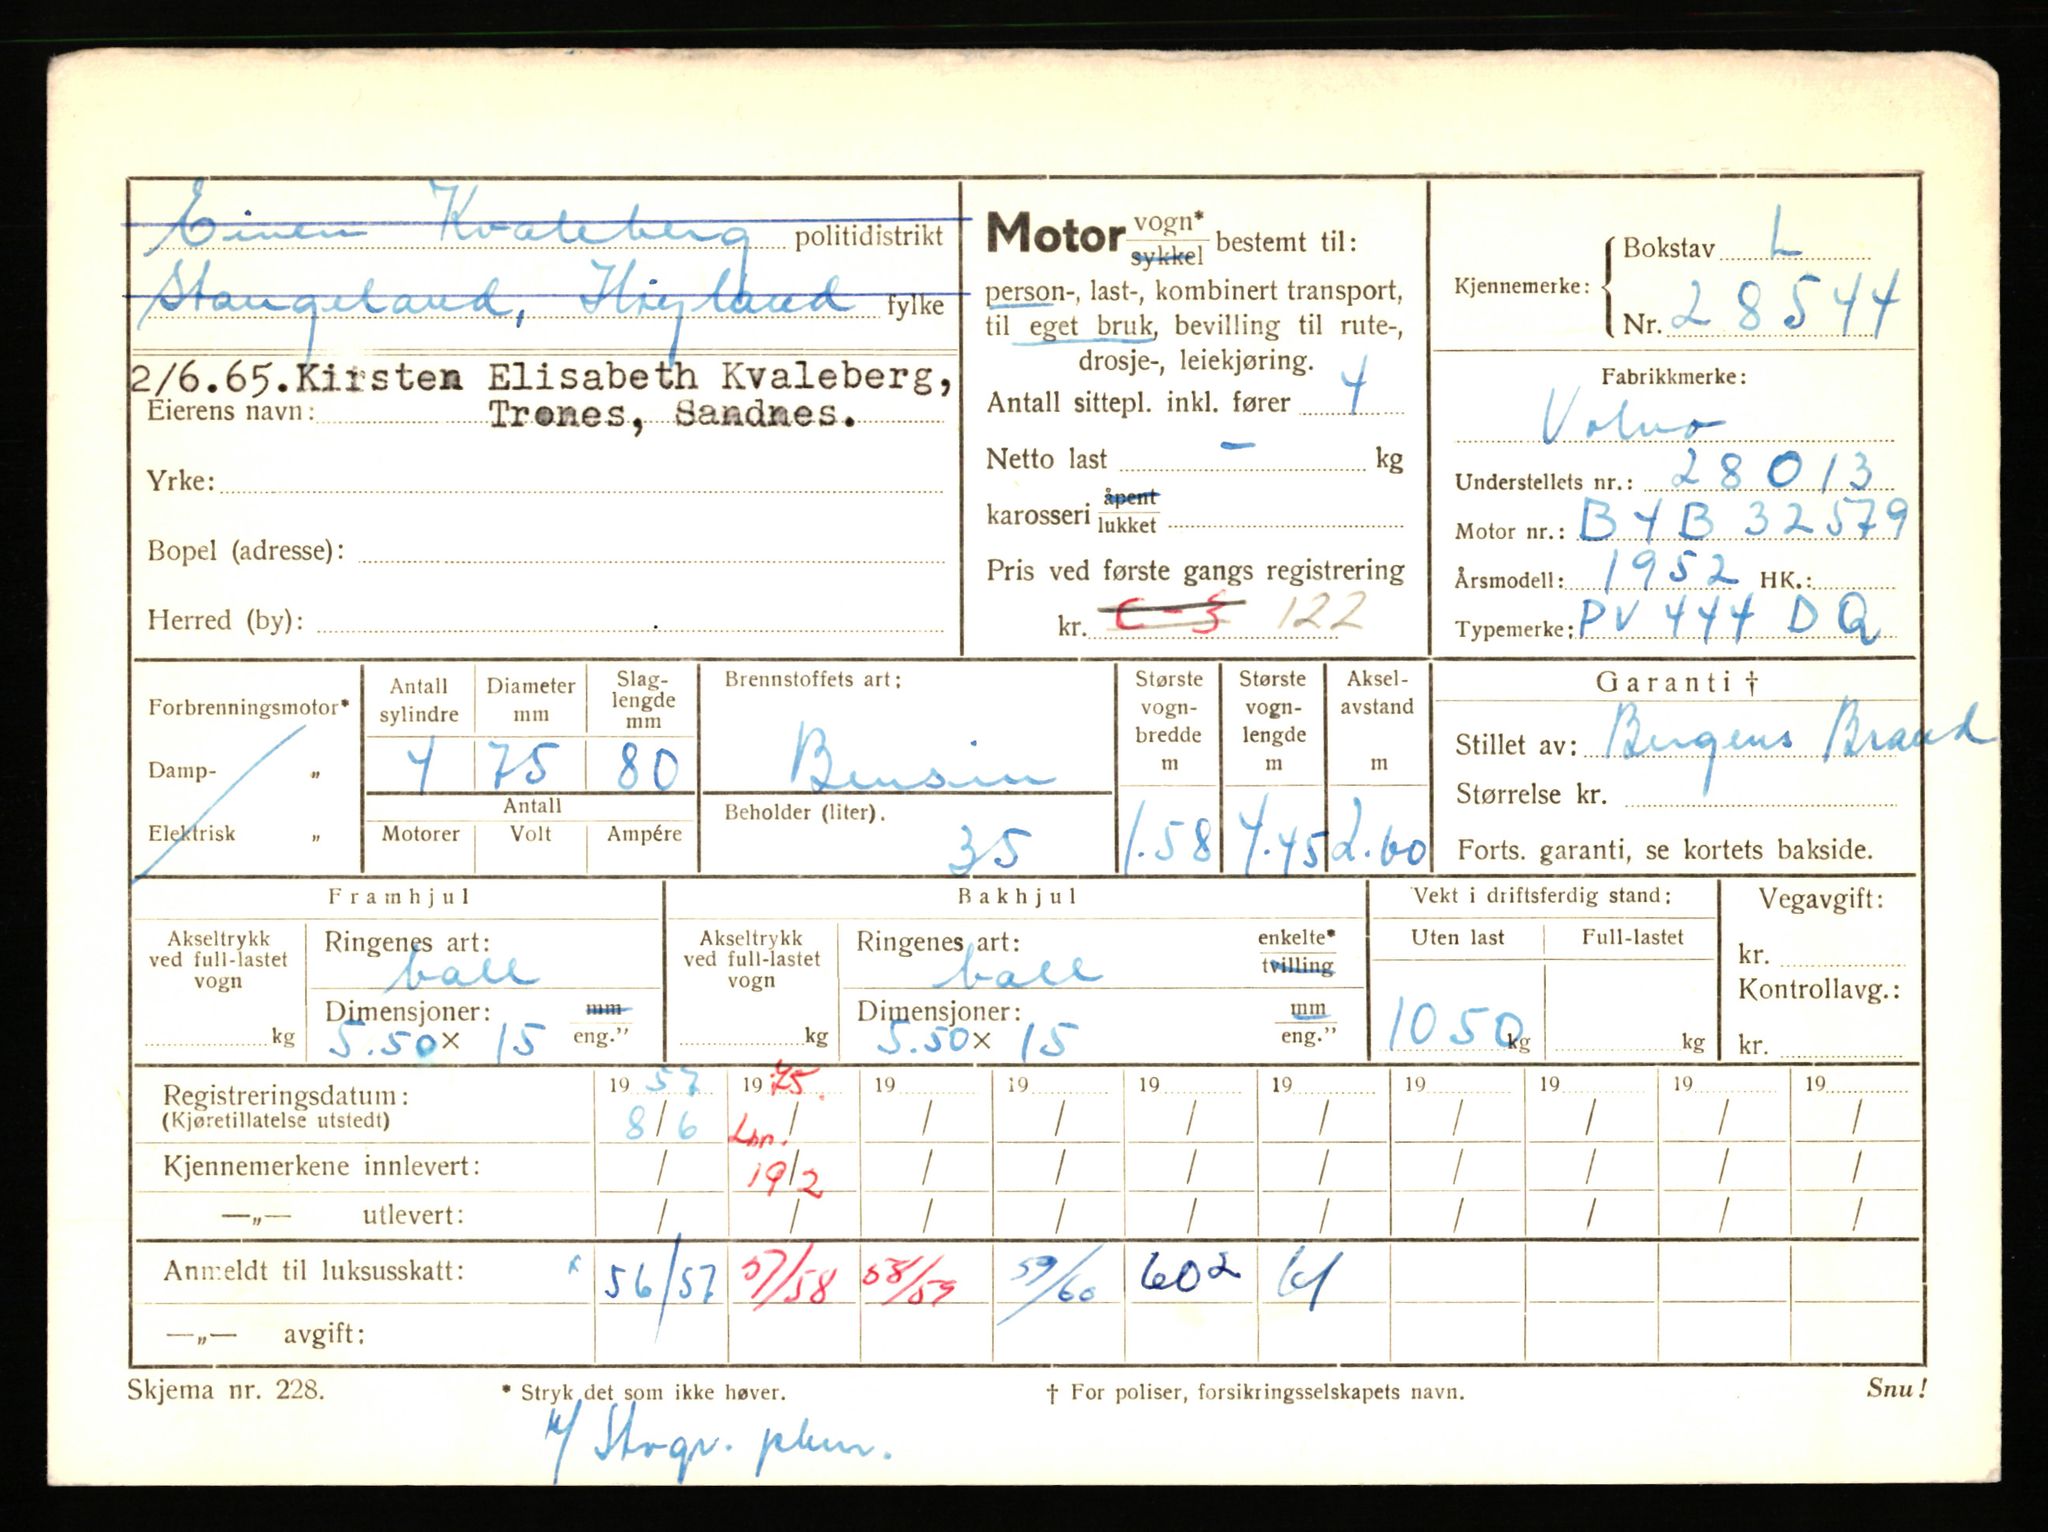 Einar Kvaleberg politidistrikt
Stangeland, Høyland fylke
2/6.65. Kirsten Elisabeth Kvaleberg,
Eierens navn: Trones, Sandnes.
Yrke:
Bopel (adresse):
Herred (by):
Motor vogn* sykkel bestemt til:
person-, last-, kombinert transport,
til eget bruk, bevilling til rute-,
drosje-, leiekjøring.
Antall sittepl. inkl. fører 4
Netto last - kg
karosseri åpent lukket
Pris ved første gangs registrering
kr. C-3 122
Kjennemerke: Bokstav L
Nr. 28544
Fabrikkmerke:
Volvo
Understellets nr.: 28013
Motor nr.: B4B 32579
Årsmodell: 1952 HK.:
Typemerke: PV 444 DQ
Forbrenningsmotor*
Damp- „
Elektrisk „
Antall sylindre
Diameter mm
Slaglengde mm
4 75 80
Antall
Motorer Volt Ampére
Brennstoffets art:
Bensin
Beholder (liter).
35
Største vognbredde m
1.58
Største vognlengde m
4.45
Akselavstand m
2.60
Garanti †
Stillet av: Bergens Brand
Størrelse kr.
Forts. garanti, se kortets bakside.
Framhjul
Akseltrykk ved full-lastet vogn
kg
Ringenes art:
ball
Dimensjoner: mm
5.50 x 15 eng.”
Bakhjul
Akseltrykk ved full-lastet vogn
kg
Ringenes art: enkelte*
ball tvilling
Dimensjoner: mm
5.50 x 15 eng.”
Vekt i driftsferdig stand:
Uten last Full-lastet
1050 kg kg
Vegavgift:
kr.
Kontrollavg.:
kr.
Registreringsdatum: 19 57 19 75. 19 19 19 19 19 19 19 19
(Kjøretillatelse utstedt) 8/6 / / / / / / / / /
Kjennemerkene innlevert: / 19/2 / / / / / / / /
—„— utlevert: / / / / / / / / / /
Anmeldt til luksusskatt: x 56/57 57/58 58/59 59/60 602 61
—„— avgift:
Skjema nr. 228.
* Stryk det som ikke høver.
† For poliser, forsikringsselskapets navn.
Snu!